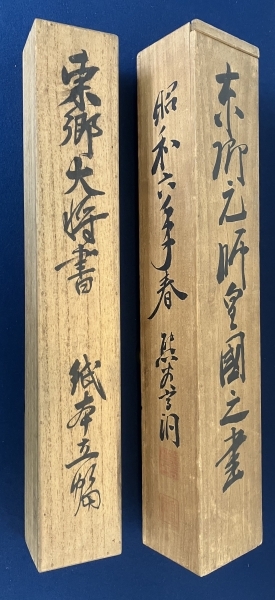 東郷元帥皇國之書
昭和六年春
東郷大将書 紙本立幅